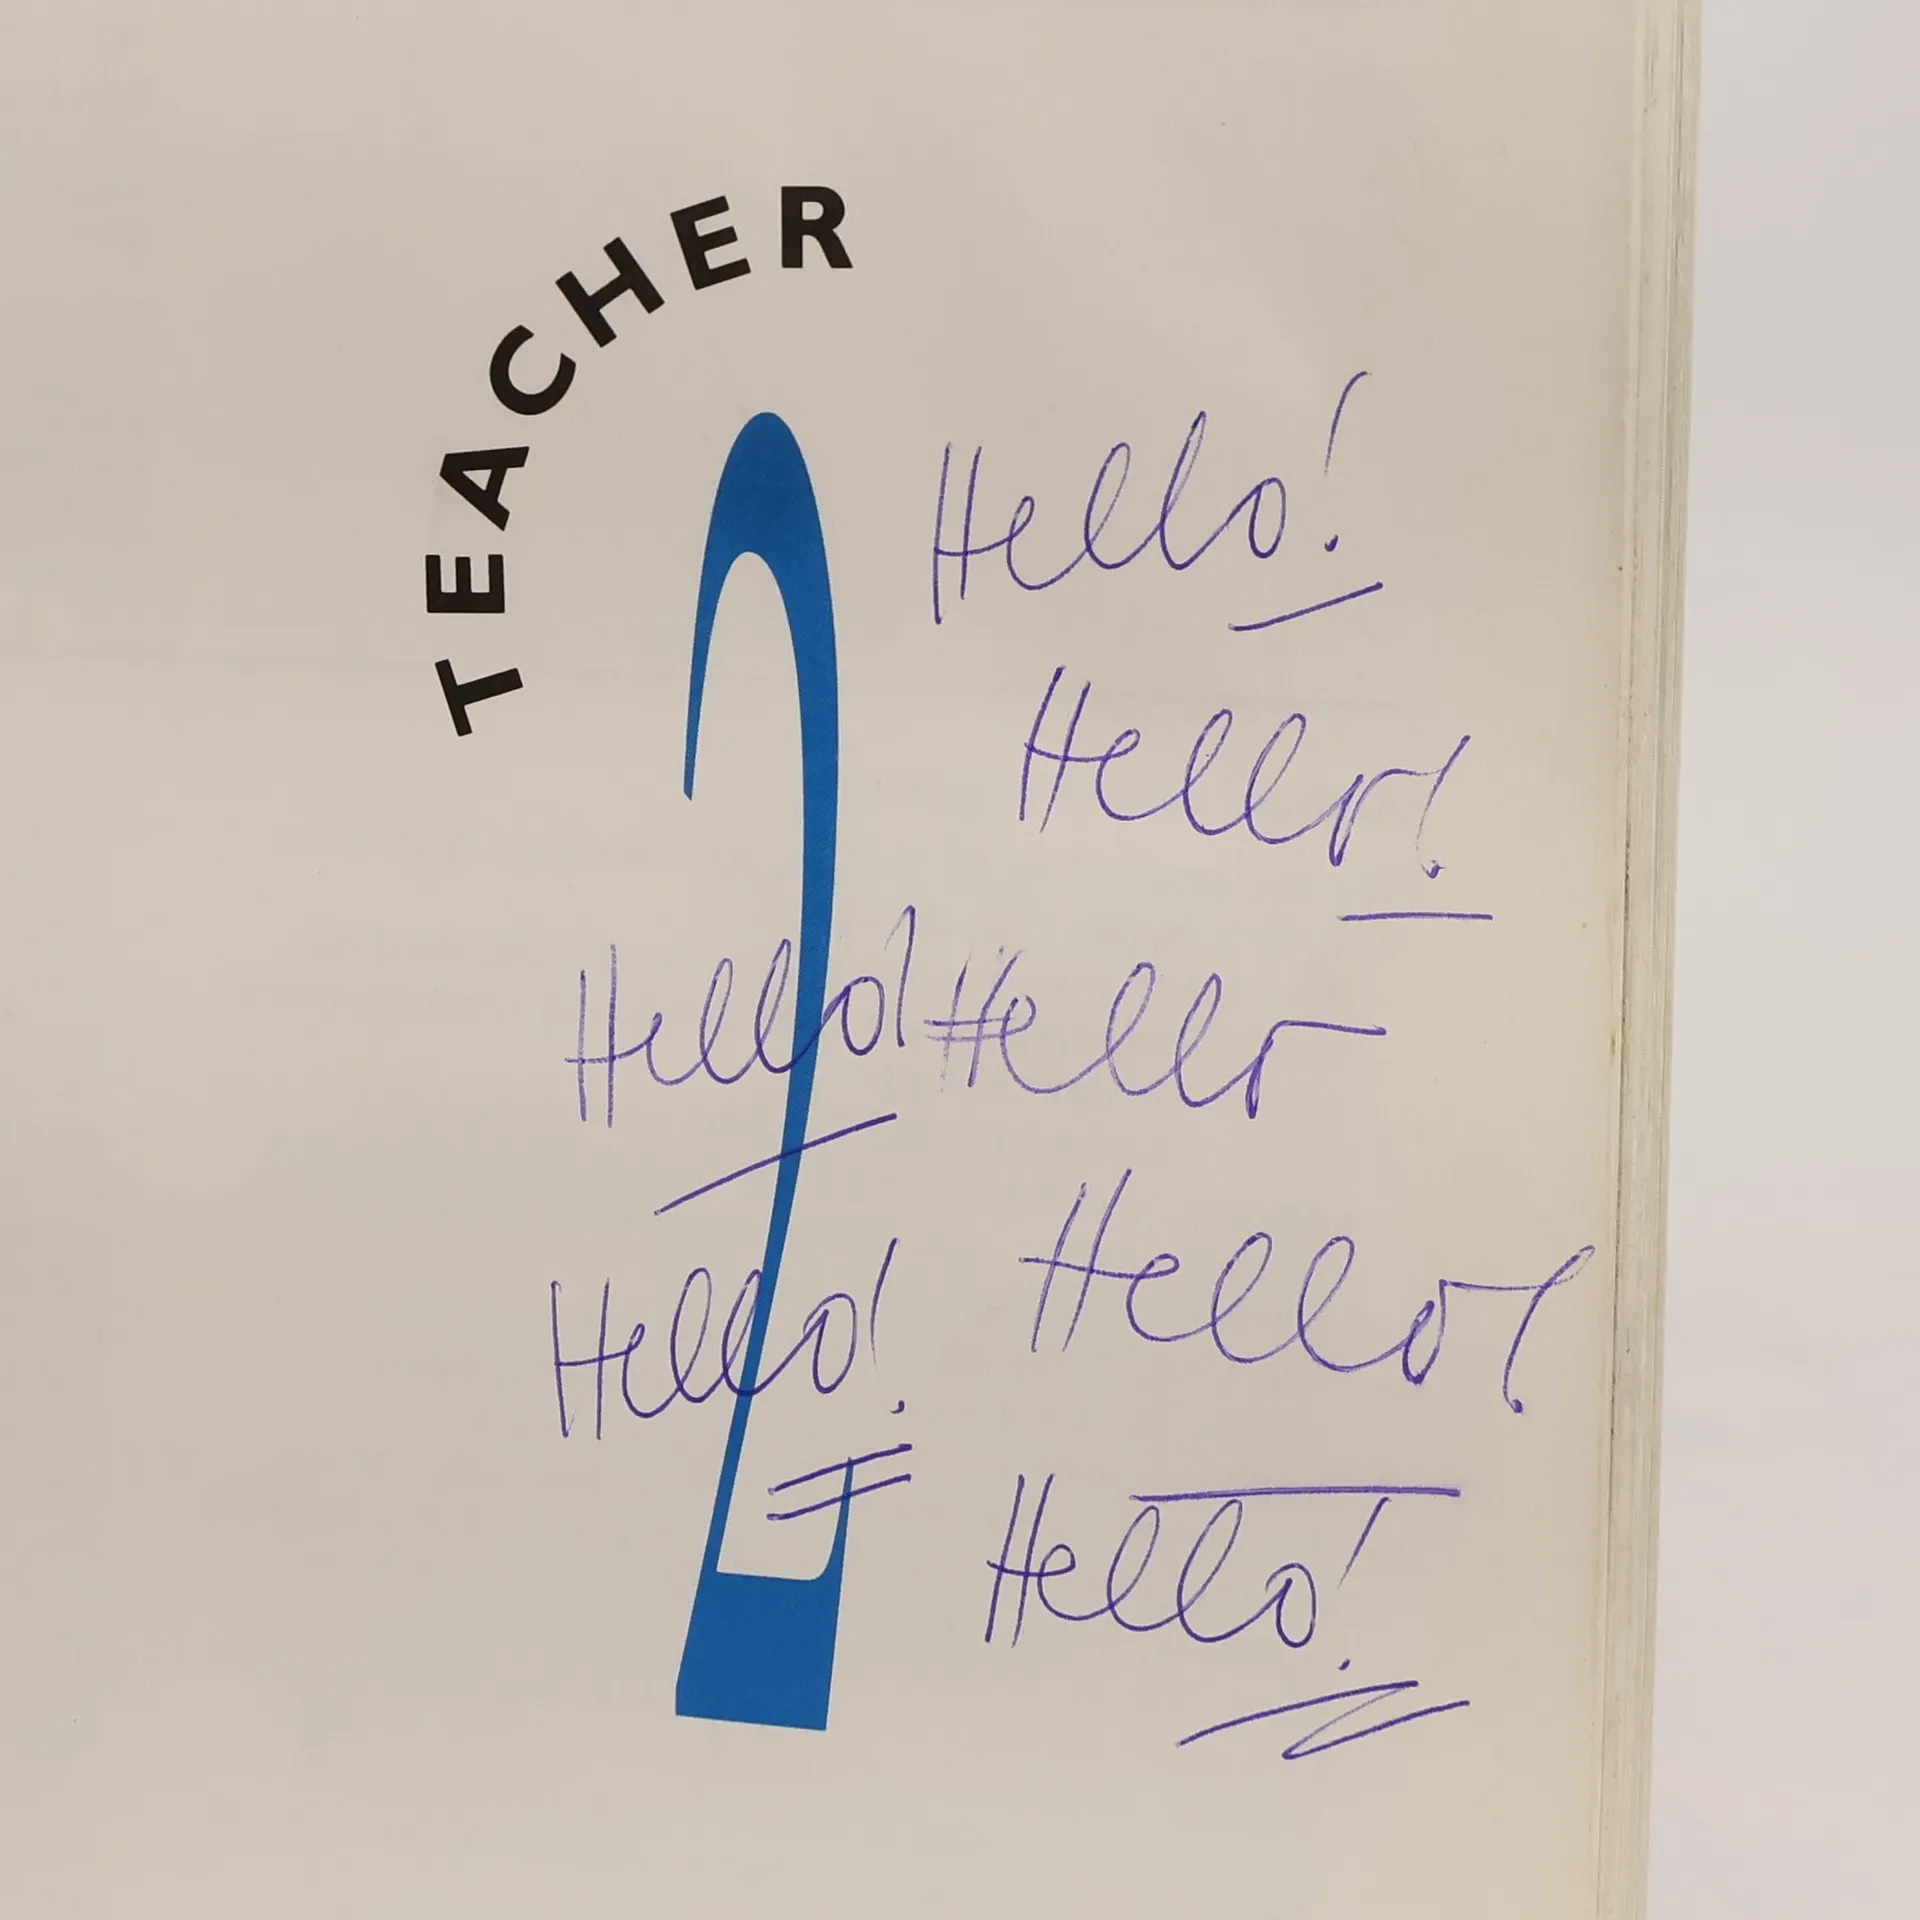 TEACHER
2
Hello!
Hello!
Hello! Hello
Hello!
Hello!
Hello!